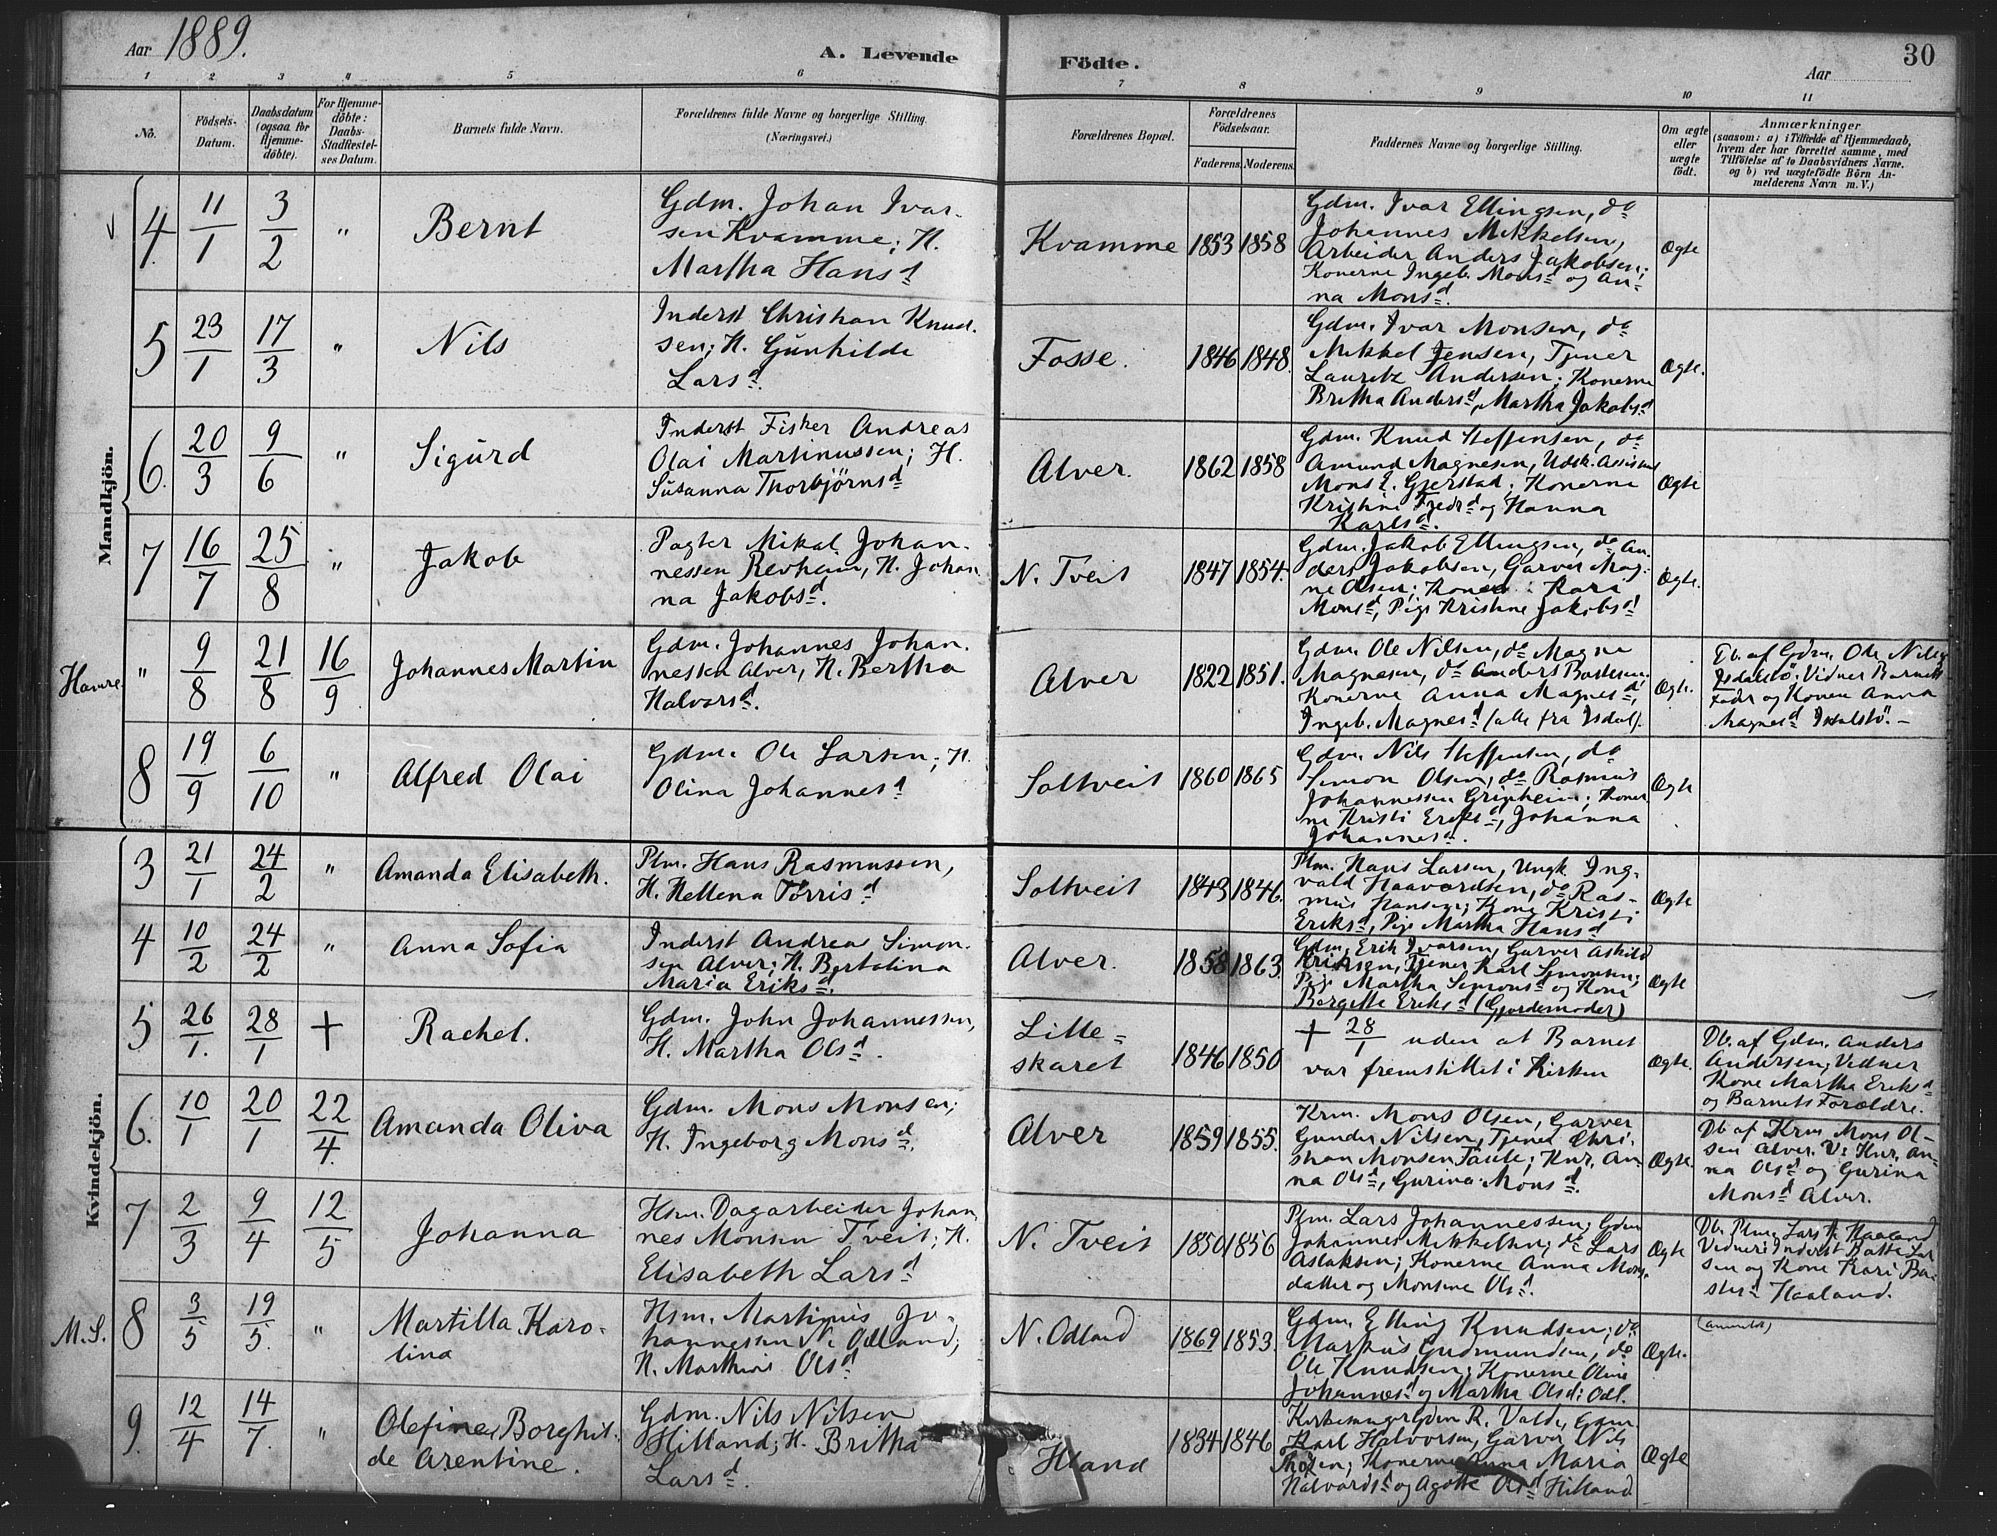 Aar 1889.
A. Levende Födte.
Aar
30
1 2 3 4 5 6 7 8 9 10 11
No.
Födsels-Datum.
Daabsdatum (ogsaa for Hjemme-döbte).
For Hjemme-döbte: Daabs-Stadfæstel-ses Datum.
Barnets fulde Navn.
Forældrenes fulde Navne og borgerlige Stilling. (Næringsvei.)
Forældrenes Bopæl.
Forældrenes Födselsaar.
Faderens. Moderens.
Faddernes Navne og borgerlige Stilling.
Om ægte eller uægte födt.
Anmærkninger
(saasom: a) i Tilfælde af Hjemmedaab,
hvem der har forrettet samme, med
Tilföielse af to Daabsvidners Navne.
og b) ved uægtefödte Börn An-
melderens Navn m. V.)
Mandkjön.
4. 11/1 3/2 " Bernt
Gdm. Johan Ivar-
sen Kvamme; H.
Martha Hansd
Kvamme 1853 1858
Gdm. Ivar Ellingsen, do
Johannes Mikkelsen,
Arbeider Anders Jakobsen;
Konerne Ingeb. Monsd og An-
na Monsd.
Ægte
5 23/1 17/3 " Nils
Inderst Christian Knud-
sen; H. Gunhilde
Larsd.
Fosse. 1846 1848.
Gdm. Ivar Monsen, do
Mikkel Jensen, Tjener
Lauritz Andersen; Konerne
Britha Andersd, Martha Jakobsd
Ægte.
6. 20/3 9/6 " Sigurd
Inderst Fisker Andreas
Olai Martinussen; H.
Susanna Thorbjörnsd
Alver. 1862 1858
Gdm. Knud Steffensen, do
Amund Magnesen, Udsk. Assistent
Mons E. Gjerstad; Konerne
Kristine Fredrd og Hanna
Karlsd.
Ægte
7 16/7 25/8 " Jakob
Pagter Mikal Johan-
nessen Revheim, H. Johan-
na Jakobsd.
N. Tveit 1847 1854.
Gdm. Jakob Ellingsen, do An-
ders Jakobsen, Garver Mag-
ne Olsen; Kone Kari
Monsd, Pige Kristine Jakobsd
Ægte.
Hamre. " 9/8 21/8 16/9 Johannes Martin
Gdm. Johannes Johan-
nessen Alver, H. Bertha
Halvorsd.
Alver 1822 1851.
Gdm. Ole Nilsen, do Magne
Magnesen, do Anders Bastesen.
Konerne Anna Magnesd,
Ingeb. Magnesd (alle fra Isdal).
Ægte.
Db. af Gdm. Ole Nilsen
Isdalstö. Vidner Barnets
Fader og Konen Anna
Magnesd Isdalstö.
8 19/9 6/10 " Alfred Olai
Gdm. Ole Larsen; H.
Olina Johannesd
Soltveit 1860 1865
Gdm. Nils Steffensen, do
Simon Olsen, do Rasmus
Johannessen Gripheim; Koner-
ne Kristi Eriksd, Johanna
Johannesd.
Ægte
Kvindekjön.
3 21/1 24/2 " Amanda Elisabeth.
Plm. Hans Rasmussen,
H. Hellena Torrisd
Soltveit 1843 1846.
Plm. Hans Larsen, Ungk. Ing-
vald Haavardsen, do Ras-
mus Hansen; Kone Kristi
Eriksd, Pige Martha Hansd
Ægte
4 10/2 24/2 " Anna Sofia
Inderst Andreas Simon-
sen Alver; H. Bertolina
Maria Eriksd.
Alver. 1858 1863.
Gdm. Erik Ivarsen, Garver Askild
Eriksen, Tjener Karl Simonsen;
Pige Martha Simonsd og Kone
Bergitte Eriksd (Gjordemoder)
Ægte
5 26/1. 28/1 + Rachel.
Gdm. John Johannessen,
H. Martha Olsd.
Lille-
skaret 1846 1850
+ 28/1 uden at Barnet
var fremstillet i Kirken
Ægte.
Db. af Gdm. Anders
Andersen; Vidner
Kone Martha Eriksd
og Barnets Forældre.
6. 10/1 20/1 22/4. Amanda Oliva
Gdm. Mons Monsen;
H. Ingeborg Monsd.
Alver 1859 1855.
Krm. Mons Olsen, Garver
Gunder Nilsen, Tjener Chri-
stian Monsen Taule; Knr. An-
na Olsd, Gurina Monsd.
Ægte.
Db af Krm Mons Ol-
sen Alver. V: Knr. An-
na Olsd og Gurina
Monsd Alver.
7 2/3 9/4 12/5 Johanna
Hsm. Dagarbeider Johan-
nes Monsen Tveit; H.
Elisabeth Larsd
N. Tveit 1850 1856
Plm. Lars Johannessen; Gdm
Johannes Mikkelsen; do Lars
Aslaksen; Konerne Anna Mons-
datter og Monsine Olsd.
Ægte
Db. Plm. Lars H. Haaland
Vidner: Inderst Baste Lar-
sen og Kone Kari Ba-
stesd Haaland.
M.S. 8 3/5 19/5. " Martilla Karo-
lina
Hsm. Martinus Jo-
hannessen N. Odland;
H. Marthine Olsd
N. Odland 1869 1853.
Gdm. Elling Knudsen; do
Markus Gudmundsen, do
Ole Knudsen; Konerne Oline
Johannesd og Martha Olsd: Odl.
Ægte.
(anmeldt)
9. 12/4 14/7. " Olefine Borghil-
de Arentine.
Gdm. Nils Nilsen
Hilland; H. Britha
Larsd.
Hland 1834 1846
Kirkesanger Gdm R. Valde, Gdm.
Karl Halvorsen, Garver Nils
Konerne Anna Maria
Halvordsd og Agathe Olsd Hilland
Ægte